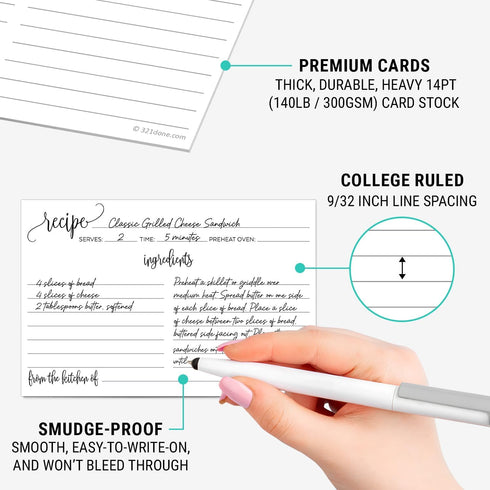 PREMIUM CARDS
THICK, DURABLE, HEAVY 14PT
(140LB / 300GSM) CARD STOCK
© 321done.com
COLLEGE RULED
9/32 INCH LINE SPACING
recipe Classic Grilled Cheese Sandwich
SERVES: 2 TIME: 5 minutes PREHEAT OVEN:
ingredients
4 slices of bread
4 slices of cheese
2 tablespoons butter, softened
Preheat a skillet or griddle over
medium heat. Spread butter on one side
of each slice of bread. Place a slice
of cheese between two slices of bread,
buttered side facing out. Place the
sandwiches on
until
from the kitchen of
SMUDGE-PROOF
SMOOTH, EASY-TO-WRITE-ON,
AND WON'T BLEED THROUGH